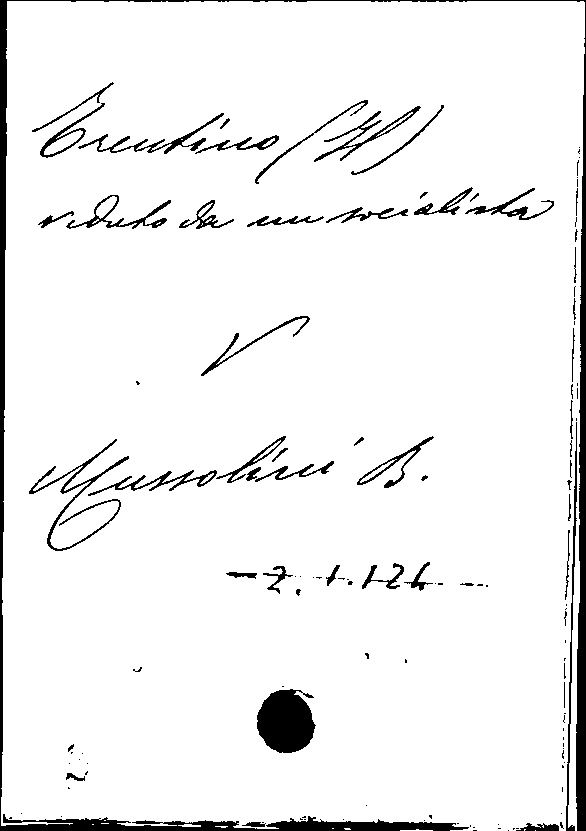 Trentino (Il)
veduto da un socialista
V
Mussolini B.
2.1.124